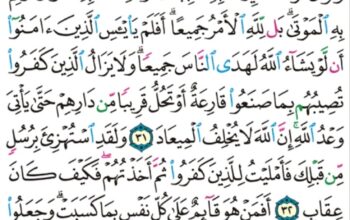 بِهِ ٱلْمَوْتَىٰ ۗ بَل لِّلَّهِ ٱلْأَمْرُ جَمِيعًا ۗ أَفَلَمْ يَا۟يْـَٔسِ ٱلَّذِينَ ءَامَنُوٓا۟
أَن لَّوْ يَشَآءُ ٱللَّهُ لَهَدَى ٱلنَّاسَ جَمِيعًا ۗ وَلَا يَزَالُ ٱلَّذِينَ كَفَرُوا۟
تُصِيبُهُم بِمَا صَنَعُوا۟ قَارِعَةٌ أَوْ تَحُلُّ قَرِيبًا مِّن دَارِهِمْ حَتَّىٰ يَأْتِىَ
وَعْدُ ٱللَّهِ ۚ إِنَّ ٱللَّهَ لَا يُخْلِفُ ٱلْمِيعَادَ ٣١ وَلَقَدِ ٱسْتُهْزِئَ بِرُسُلٍ
مِّن قَبْلِكَ فَأَمْلَيْتُ لِلَّذِينَ كَفَرُوا۟ ثُمَّ أَخَذْتُهُمْ ۖ فَكَيْفَ كَانَ
عِقَابِ ٣٢ أَفَمَنْ هُوَ قَآئِمٌ عَلَىٰ كُلِّ نَفْسٍۭ بِمَا كَسَبَتْ ۗ وَجَعَلُوا۟